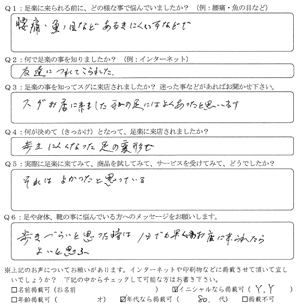 Q1：足楽に来られる前に、どの様な事で悩んでいましたか？（例：腰痛・魚の目など）
腰痛・魚の目など あるきにくいすなどで
Q2：何で足楽の事を知りましたか？（例：インターネット）
友達につれてこられました。
Q3：足楽の事を知ってスグに来店されましたか？来店、迷った事などがあればお聞かせ下さい。
スグお店に来ました それの足にはよくあったと思います
Q4：何が決めて（きっかけ）となって、足楽に来店されましたか？
歩きにくくなった 足の変形で
Q5：実際に足楽に来てみて、商品を試してみて、サービスを受けてみて、どうでしたか？
それは よかったと思っている
Q6：足や身体、靴の事に悩んでいる方へのメッセージをお願いします。
歩きづらいと思った時は 1日でも早くお店に来られたら
よいと思う
※上記のお声についてお願いがあります。インターネットや印刷物などに掲載させて頂いて宜し
いでしょうか？ 下記の中からチェックして可能な方はお書き下さい。
□名前掲載可（お名前 ） ☑イニシャルなら掲載可（ Y.Y ）
□年齢掲載可（ 才） ☑年代なら掲載可（ 80 代） □掲載不可